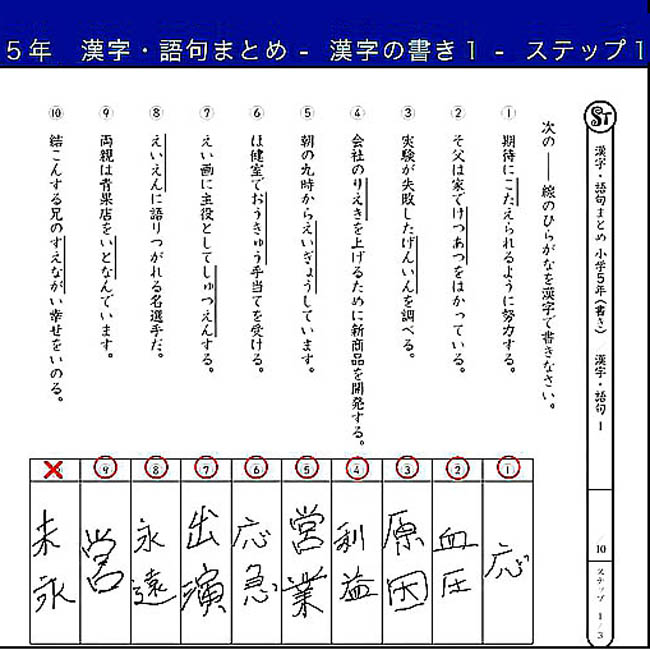 ５年　漢字・語句まとめ - 漢字の書き１ - ステップ１
ST 漢字・語句まとめ 小学５年（書き） 漢字・語句 1 /10 ステップ 1/3
次の――線のひらがなを漢字で書きなさい。
① 期待にこたえられるように努力する。
② そ父は家でけつあつをはかっている。
③ 実験が失敗したげんいんを調べる。
④ 会社のりえきを上げるために新商品を開発する。
⑤ 朝の九時からえいぎょうしています。
⑥ ほ健室でおうきゅう手当てを受ける。
⑦ えい画に主役としてしゅつえんする。
⑧ えいえんに語りつがれる名選手だ。
⑨ 両親は青果店をいとなんでいます。
⑩ 結こんする兄のすえながい幸せをいのる。
① 応
② 血圧
③ 原因
④ 利益
⑤ 営業
⑥ 応急
⑦ 出演
⑧ 永遠
⑨ 営
⑩ 未永